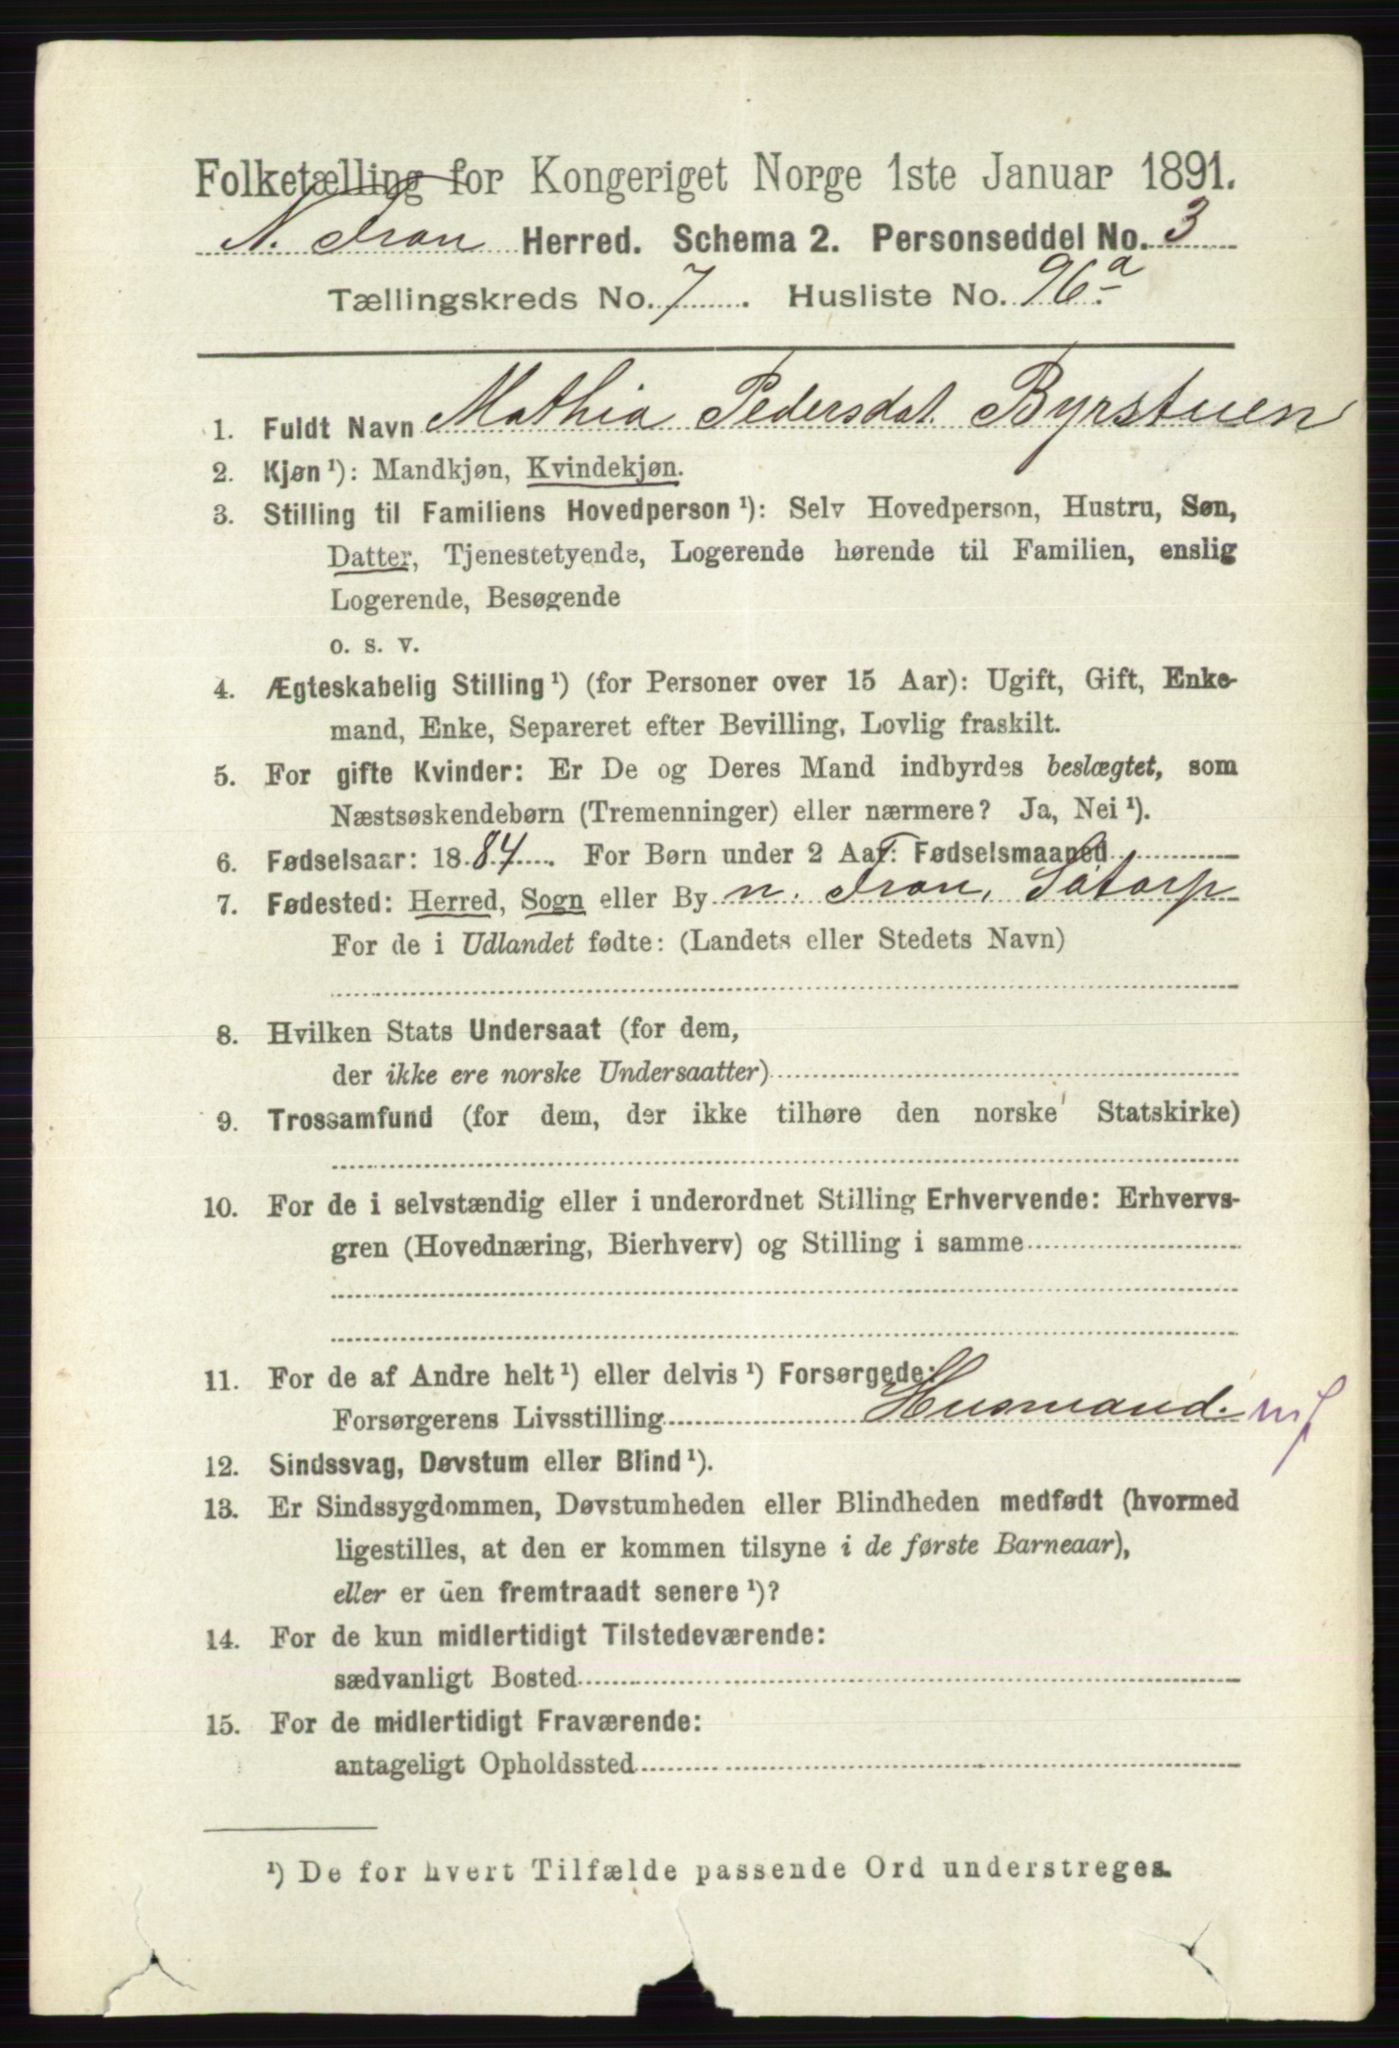 Folketælling for Kongeriget Norge 1ste Januar 1891.
N. Fron Herred. Schema 2. Personseddel No. 3
Tællingskreds No. 7. Husliste No. 96a
1. Fuldt Navn Mathia Pedersdat. Byrstuen
2. Kjøn¹): Mandkjøn, Kvindekjøn.
3. Stilling til Familiens Hovedperson¹): Selv Hovedperson, Hustru, Søn,
Datter, Tjenestetyende, Logerende hørende til Familien, enslig
Logerende, Besøgende
o. s. v.
4. Ægteskabelig Stilling¹) (for Personer over 15 Aar): Ugift, Gift, Enke-
mand, Enke, Separeret efter Bevilling, Lovlig fraskilt.
5. For gifte Kvinder: Er De og Deres Mand indbyrdes beslægtet, som
Næstsøskendebørn (Tremenninger) eller nærmere? Ja, Nei¹).
6. Fødselsaar: 1884. For Børn under 2 Aar: Fødselsmaaned
7. Fødested: Herred, Sogn eller By n. Fron, Sødorp
For de i Udlandet fødte: (Landets eller Stedets Navn)
8. Hvilken Stats Undersaat (for dem,
der ikke ere norske Undersaatter)
9. Trossamfund (for dem, der ikke tilhøre den norske Statskirke)
10. For de i selvstændig eller i underordnet Stilling Erhvervende: Erhvervs-
gren (Hovednæring, Bierhverv) og Stilling i samme
11. For de af Andre helt¹) eller delvis¹) Forsørgede:
Forsørgerens Livsstilling Husmand. mf
12. Sindssvag, Døvstum eller Blind¹).
13. Er Sindssygdommen, Døvstumheden eller Blindheden medfødt (hvormed
ligestilles, at den er kommen tilsyne i de første Barneaar),
eller er den fremtraadt senere¹)?
14. For de kun midlertidigt Tilstedeværende:
sædvanligt Bosted
15. For de midlertidigt Fraværende:
antageligt Opholdssted
¹) De for hvert Tilfælde passende Ord understreges.